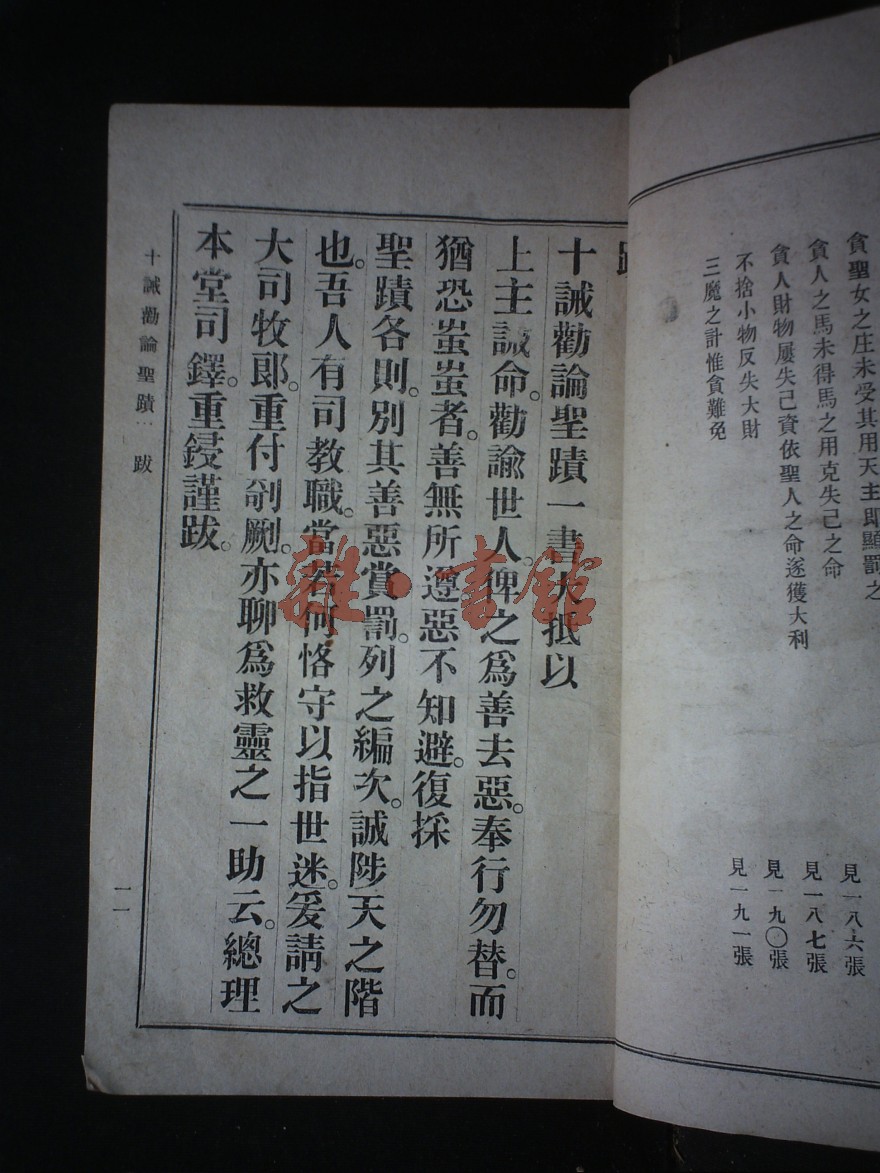 貪聖女之庄未受其用天主即顯罰之
見一八六張
貪人之馬未得馬之用克失己之命
見一八七張
貪人財物屢失己資依聖人之命遂獲大利
見一九〇張
不捨小物反失大財
見一九一張
三魔之計惟貪難免
十誡勸論聖蹟一書大抵以
上主誡命。勸諭世人。俾之爲善去惡。奉行勿替。而
猶恐蚩蚩者。善無所遵惡不知避。復採
聖蹟各則。別其善惡賞罰。列之編次。誠陟天之階
也。吾人有司教職。當若何恪守以指世迷。爰請之
大司牧郎。重付剞劂。亦聊爲救靈之一助云。總理
本堂司鐸。重鋟謹跋。
十誡勸論聖蹟 跋
二一
雜·書館